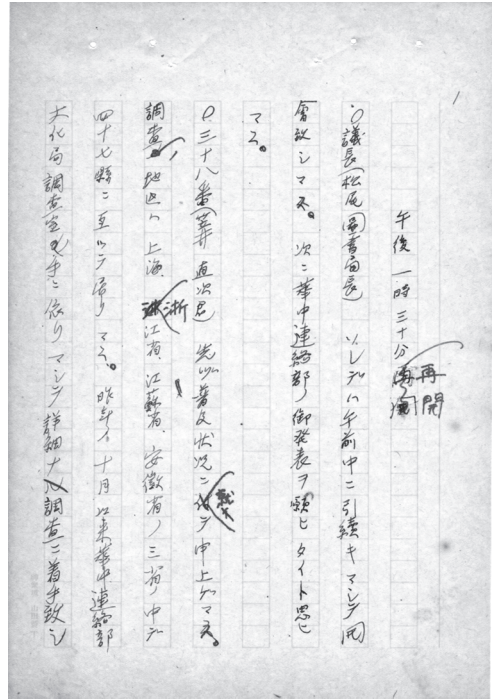 午後一時三十分再開
○議長(松尾図書局長) ソレデハ午前中ニ引続キマシテ開
會致シマス。次ニ華中連絡部ノ御発表ヲ願ヒタイト思ヒ
マス。
○三十八番( 直次君) 先以普及状況ニ就キ申上ゲマス。
調査地区ハ上海、浙江省、江蘇省、安徽省ノ三省ノ中デ
四十七縣ニ亙ツテ居リマス。昨年ノ十月以来華中連絡部
文化局調査室 手ニ依リマシテ詳細ナ調査ニ着手致シ